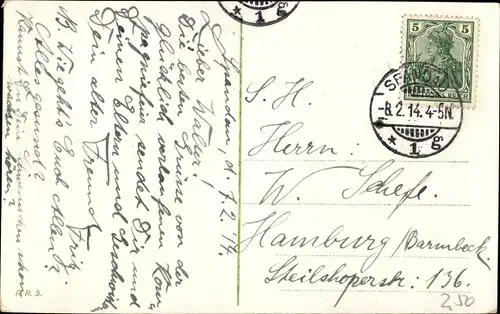 Spandau, d. 7.2.14.
Lieber Walter!
Die besten Grüsse von der
Glücklich verlaufenen Kom-
pagnie feier sendet Dir und
Deinen Eltern und Geschwistern
Dein alter Freund
Fritz.
B. Wie geht's Euch Allen?
Alle gesund?
Kannst Du Dein schon
hören?
R.R.S.
5
SPANDAU
-8.2.14.4-5N.
* 1 g
* 1 g
S. H.
Herrn:
W. Schefe.
Hamburg/Barmbeck
Steilshoperstr: 136.
2,50